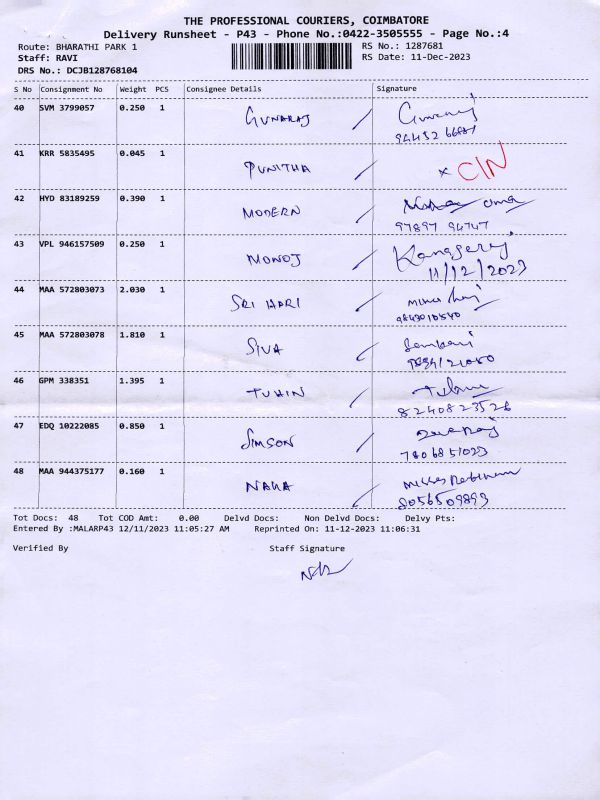 THE PROFESSIONAL COURIERS, COIMBATORE
Delivery Runsheet - P43 - Phone No.:0422-3505555 - Page No.:4
Route: BHARATHI PARK 1 RS No.: 1287681
Staff: RAVI RS Date: 11-Dec-2023
DRS No.: DCJB128768104
S No Consignment No Weight PCS Consignee Details Signature
40 SVM 3799057 0.250 1 GUNARAJ
41 KRR 5835495 0.045 1 PUNITHA x CIN
42 HYD 83189259 0.390 1 MODERN
97897 94747
43 VPL 946157509 0.250 1 MONOJ
11/12/2023
44 MAA 572803073 2.030 1 SRI HARI
9843010540
45 MAA 572803078 1.810 1 SIVA
46 GPM 338351 1.395 1 TUHIN
8240823526
47 EDQ 10222085 0.850 1 SIMSON
48 MAA 944375177 0.160 1
8056509893
Tot Docs: 48 Tot COD Amt: 0.00 Delvd Docs: Non Delvd Docs: Delvy Pts:
Entered By :MALARP43 12/11/2023 11:05:27 AM Reprinted On: 11-12-2023 11:06:31
Verified By Staff Signature